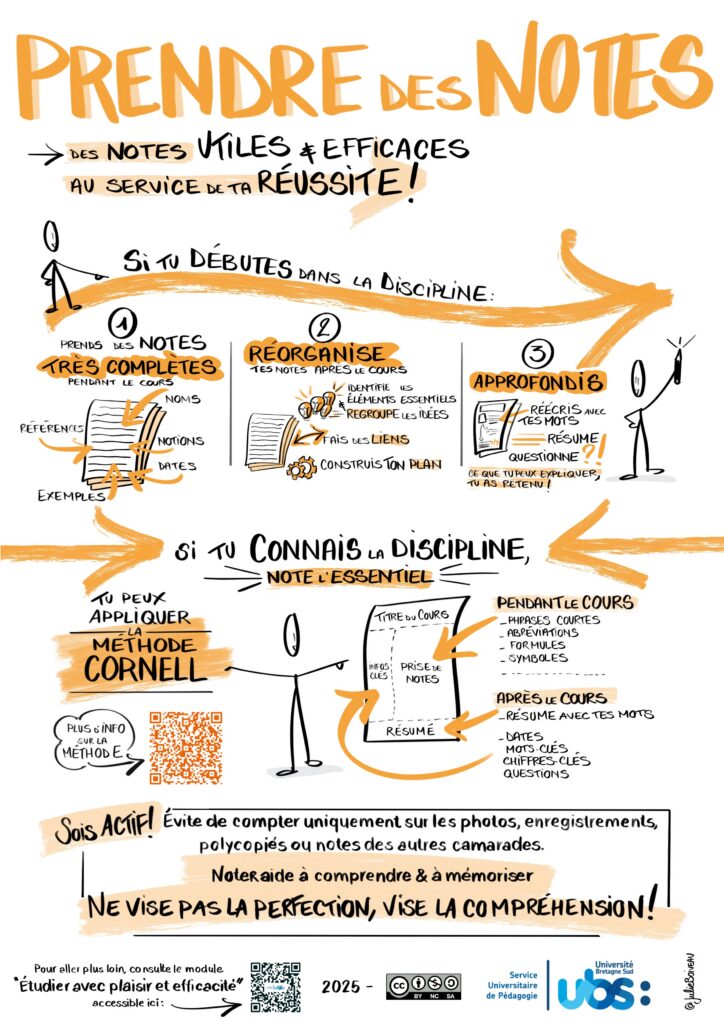 PRENDRE DES NOTES
→ DES NOTES UTILES & EFFICACES
AU SERVICE DE TA RÉUSSITE !
SI TU DÉBUTES DANS LA DISCIPLINE :
1
PRENDS DES NOTES
TRÈS COMPLÈTES
PENDANT LE COURS
NOMS
RÉFÉRENCES
NOTIONS
DATES
EXEMPLES
2
RÉORGANISE
TES NOTES APRÈS LE COURS
IDENTIFIE LES
ÉLÉMENTS ESSENTIELS
& REGROUPE LES IDÉES
FAIS DES LIENS
CONSTRUIS TON PLAN
3
APPROFONDIS
RÉÉCRIS AVEC
TES MOTS
RÉSUME
QUESTIONNE ?!
CE QUE TU PEUX EXPLIQUER,
TU AS RETENU !
SI TU CONNAIS LA DISCIPLINE,
NOTE L'ESSENTIEL
TU PEUX
APPLIQUER
LA
MÉTHODE
CORNELL
PLUS D'INFO
SUR LA
MÉTHODE
TITRE DU COURS
INFOS
CLÉS
PRISE DE
NOTES
RÉSUMÉ
PENDANT LE COURS
- PHRASES COURTES
- ABRÉVIATIONS
- FORMULES
- SYMBOLES
APRÈS LE COURS
- RÉSUME AVEC TES MOTS
- DATES
MOTS-CLÉS
CHIFFRES-CLÉS
QUESTIONS
Sois ACTIF! Évite de compter uniquement sur les photos, enregistrements,
polycopiés ou notes des autres camarades.
Noter aide à comprendre & à mémoriser
NE VISE PAS LA PERFECTION, VISE LA COMPRÉHENSION !
Pour aller plus loin, consulte le module
"Étudier avec plaisir et efficacité"
accessible ici :
2025 -
CC BY NC SA
Service
Universitaire
de Pédagogie
Université
Bretagne Sud
ubs:
@JulieBoiveau